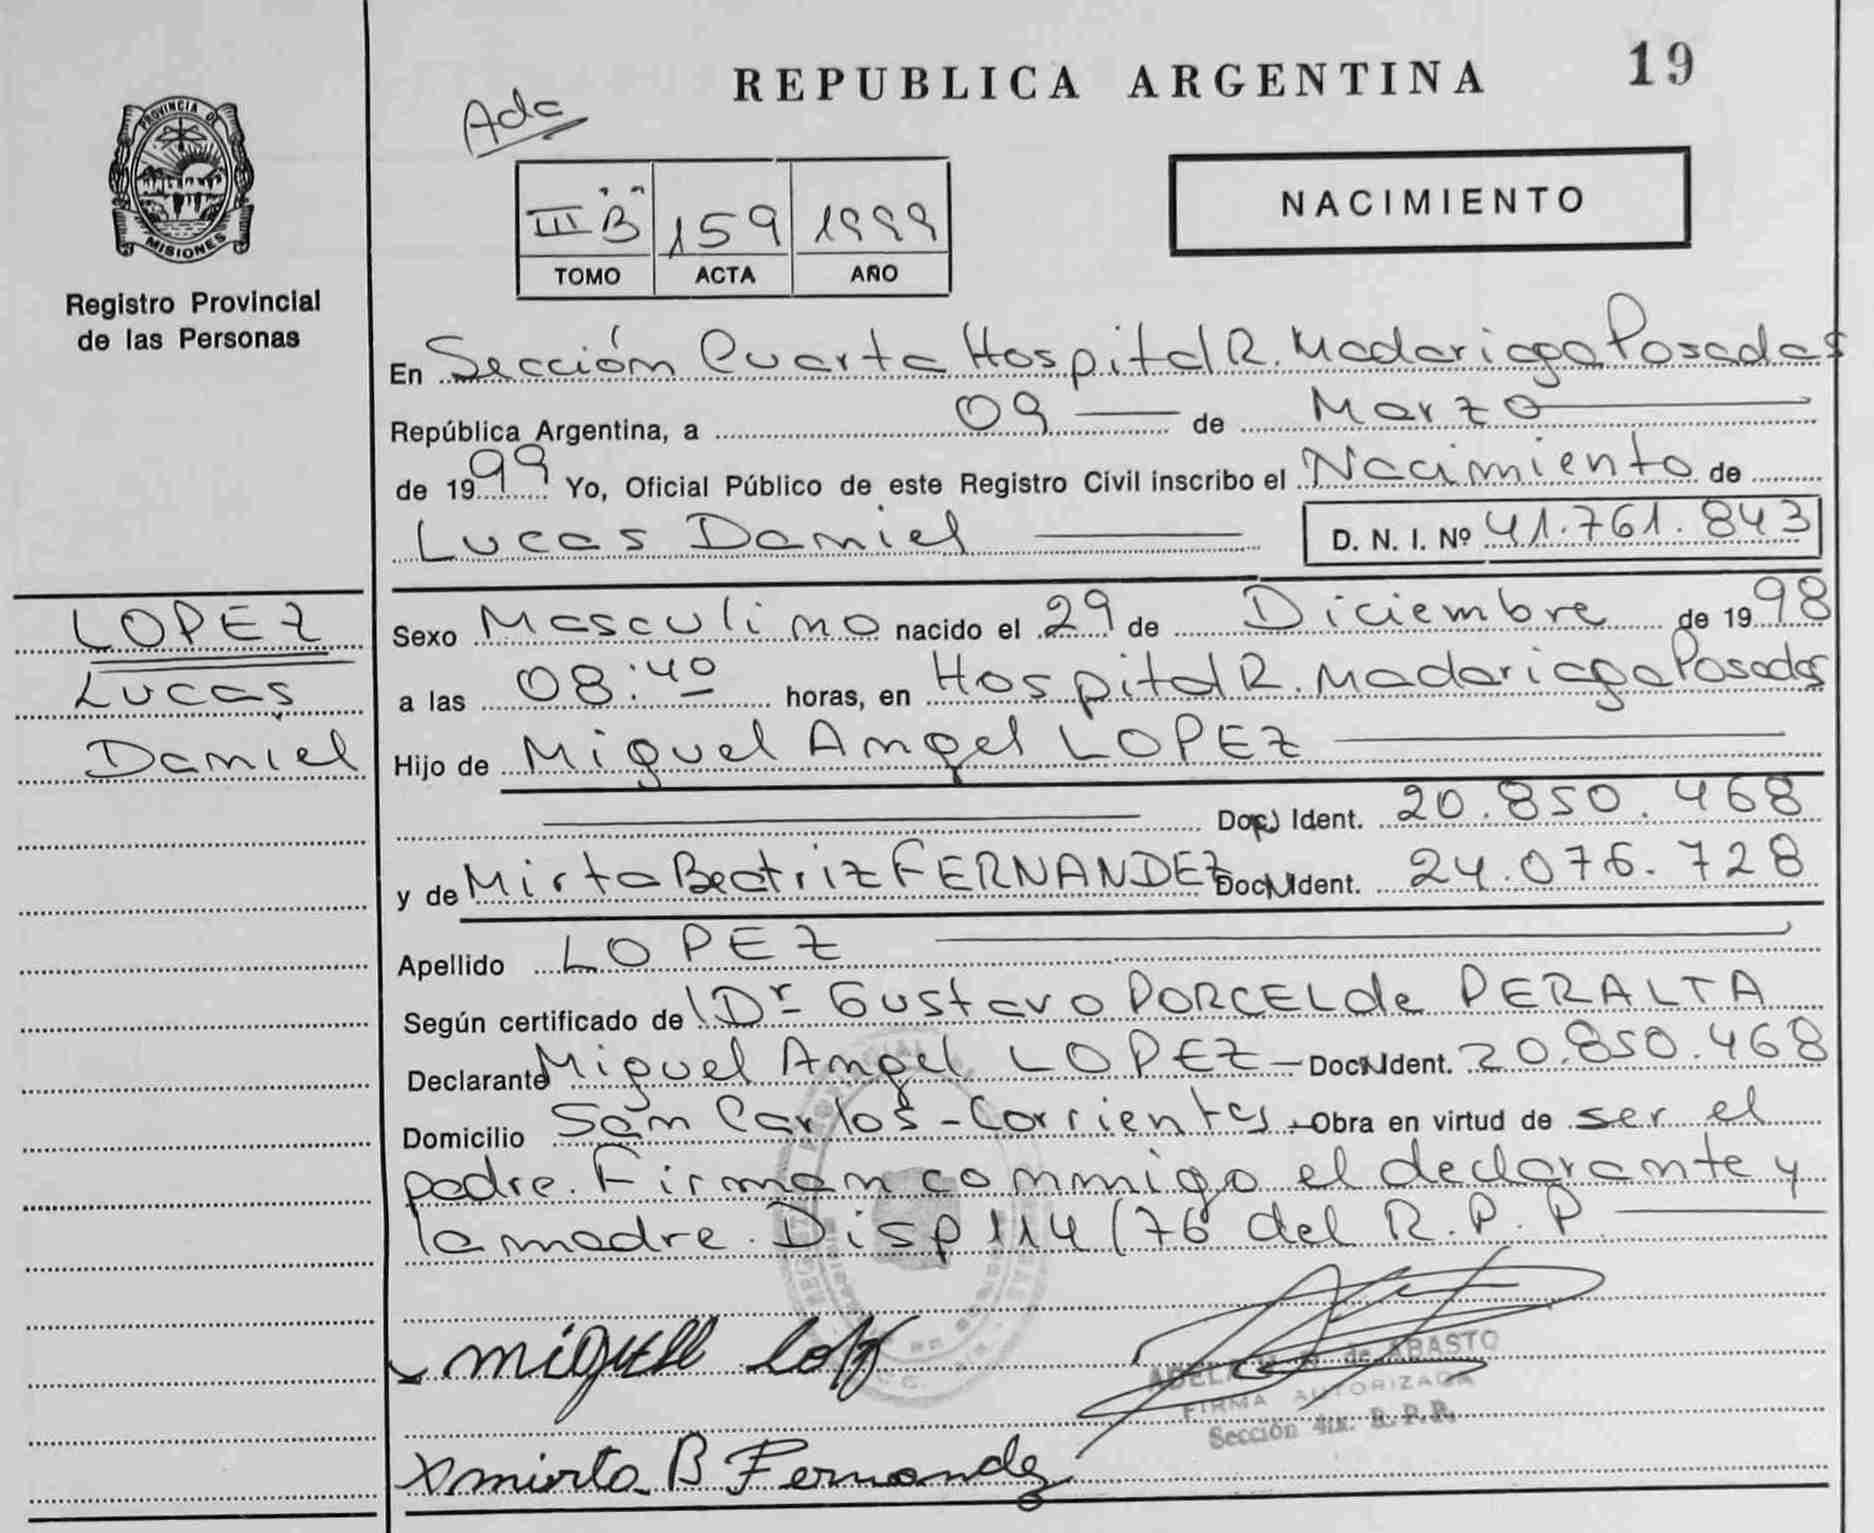 REPUBLICA ARGENTINA
19
PROVINCIA DE
MISIONES
Registro Provincial
de las Personas
Ada
III B 159 1999
TOMO ACTA AÑO
NACIMIENTO
En Sección Cuarta Hospital R. Madariaga Posadas
República Argentina, a 09 de Marzo
de 1999 Yo, Oficial Público de este Registro Civil inscribo el Nacimiento de
Lucas Daniel D. N. I. Nº 41.761.843
LOPEZ
Lucas
Daniel
Sexo Masculino nacido el 29 de Diciembre de 1998
a las 08:40 horas, en Hospital R. Madariaga Posadas
Hijo de Miguel Angel LOPEZ
Doc. Ident. 20.850.468
y de Mirta Beatriz FERNANDEZ Doc. Ident. 24.076.728
Apellido LOPEZ
Según certificado de Dr Gustavo PORCEL de PERALTA
Declarante Miguel Angel LOPEZ Doc. Ident. 20.850.468
Domicilio San Carlos - Corrientes Obra en virtud de ser el
padre. Firman conmigo el declarante y
la madre. Disp 114/76 del R. P. P
miguel
de ABASTO
FIRMA AUTORIZADA
Sección 4ta. R. P. P.
mirta B Fernandez